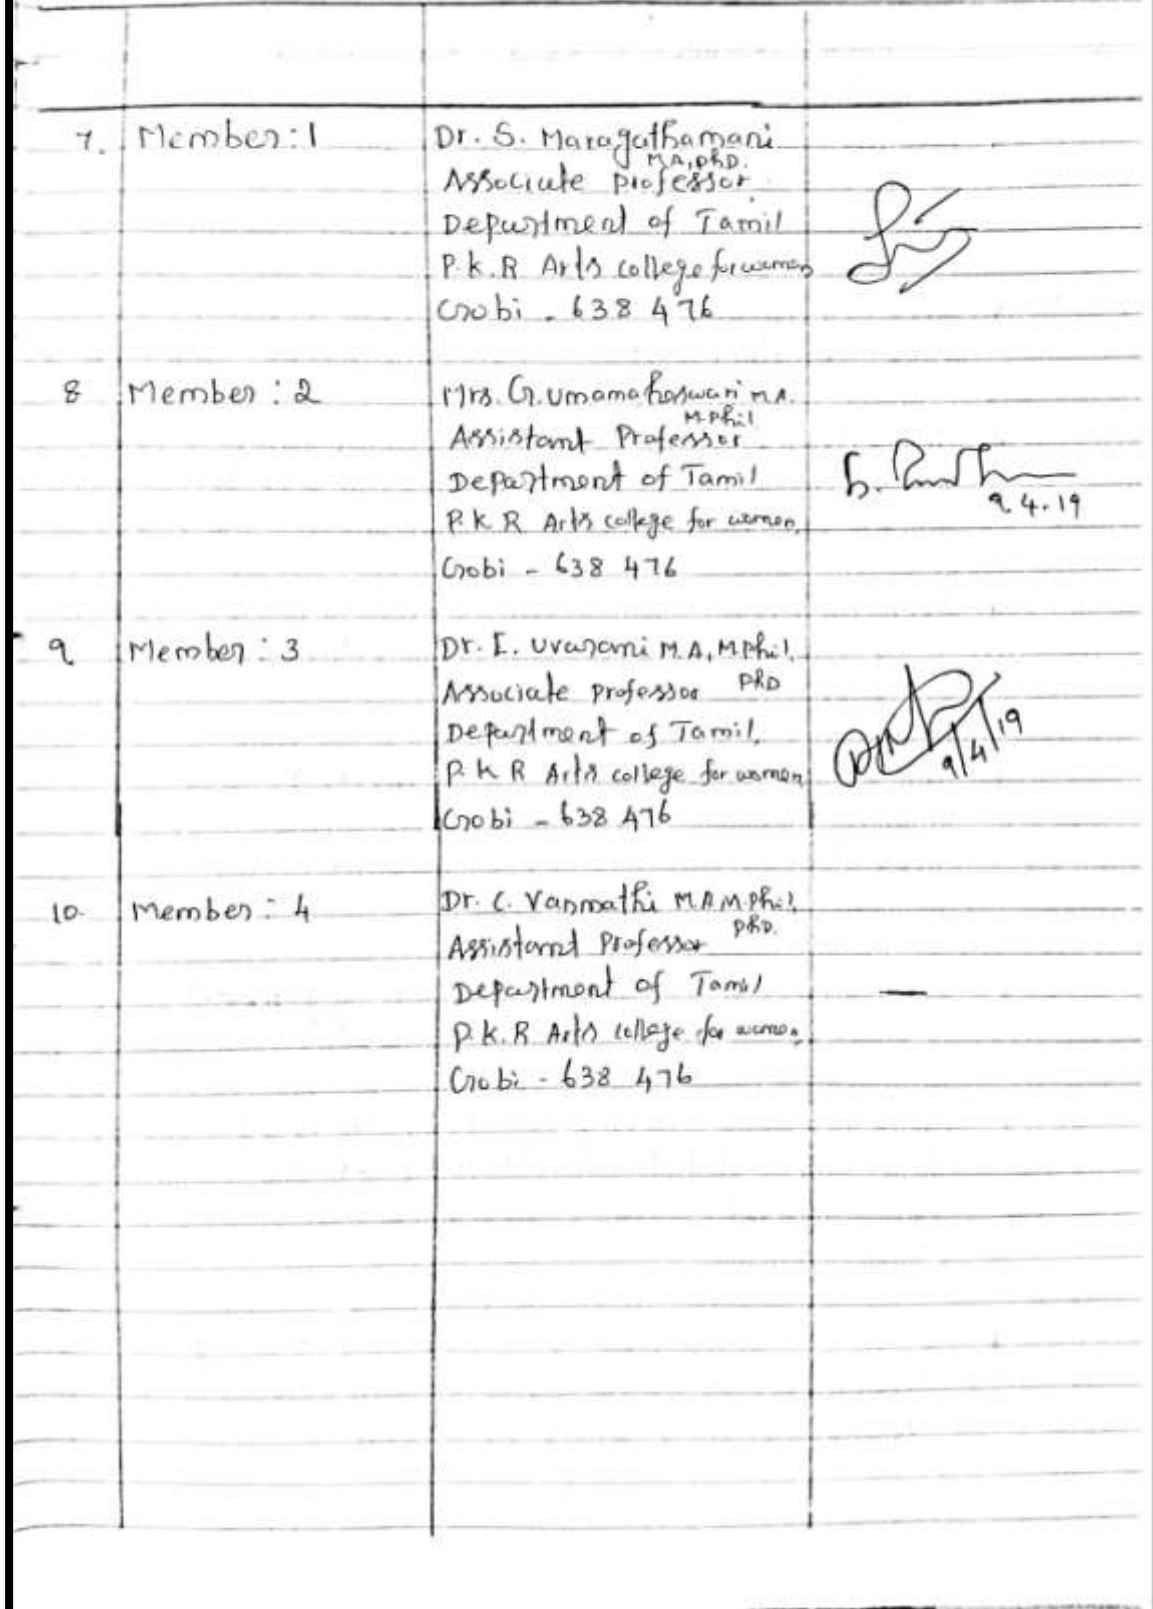 7. Member:1 Dr. S. Maragathamani
M.A, PhD.
Associate professor
Department of Tamil
P.K.R Arts college for women
Gobi - 638 476
8 Member: 2 Mrs. G. Umamaheswari M.A.
M.Phil
Assistant Professor
Department of Tamil
P.K.R Arts college for women,
9.4.19
Gobi - 638 476
9 Member: 3 Dr. E. Uvarani M.A, M.Phil.
PhD
Associate professor
Department of Tamil,
9/4/19
P.K.R Arts college for women
Gobi - 638 476
10. Member: 4 Dr. C. Vanmathi M.A M.Phil.
PhD.
Assistant Professor
Department of Tamil
P.K.R Arts college for women,
Gobi - 638 476